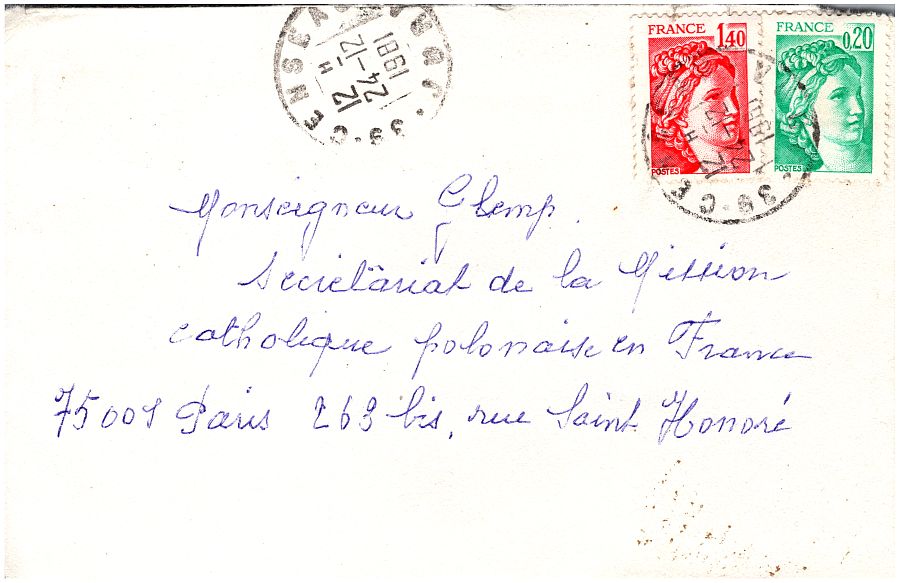 12 H
24-12
1981
39-CE
FRANCE 1,40
POSTES
FRANCE 0,20
POSTES
Monseigneur Glemp
Secrétariat de la Mission
catholique polonaise en France
75001 Paris 263 bis, rue Saint Honoré